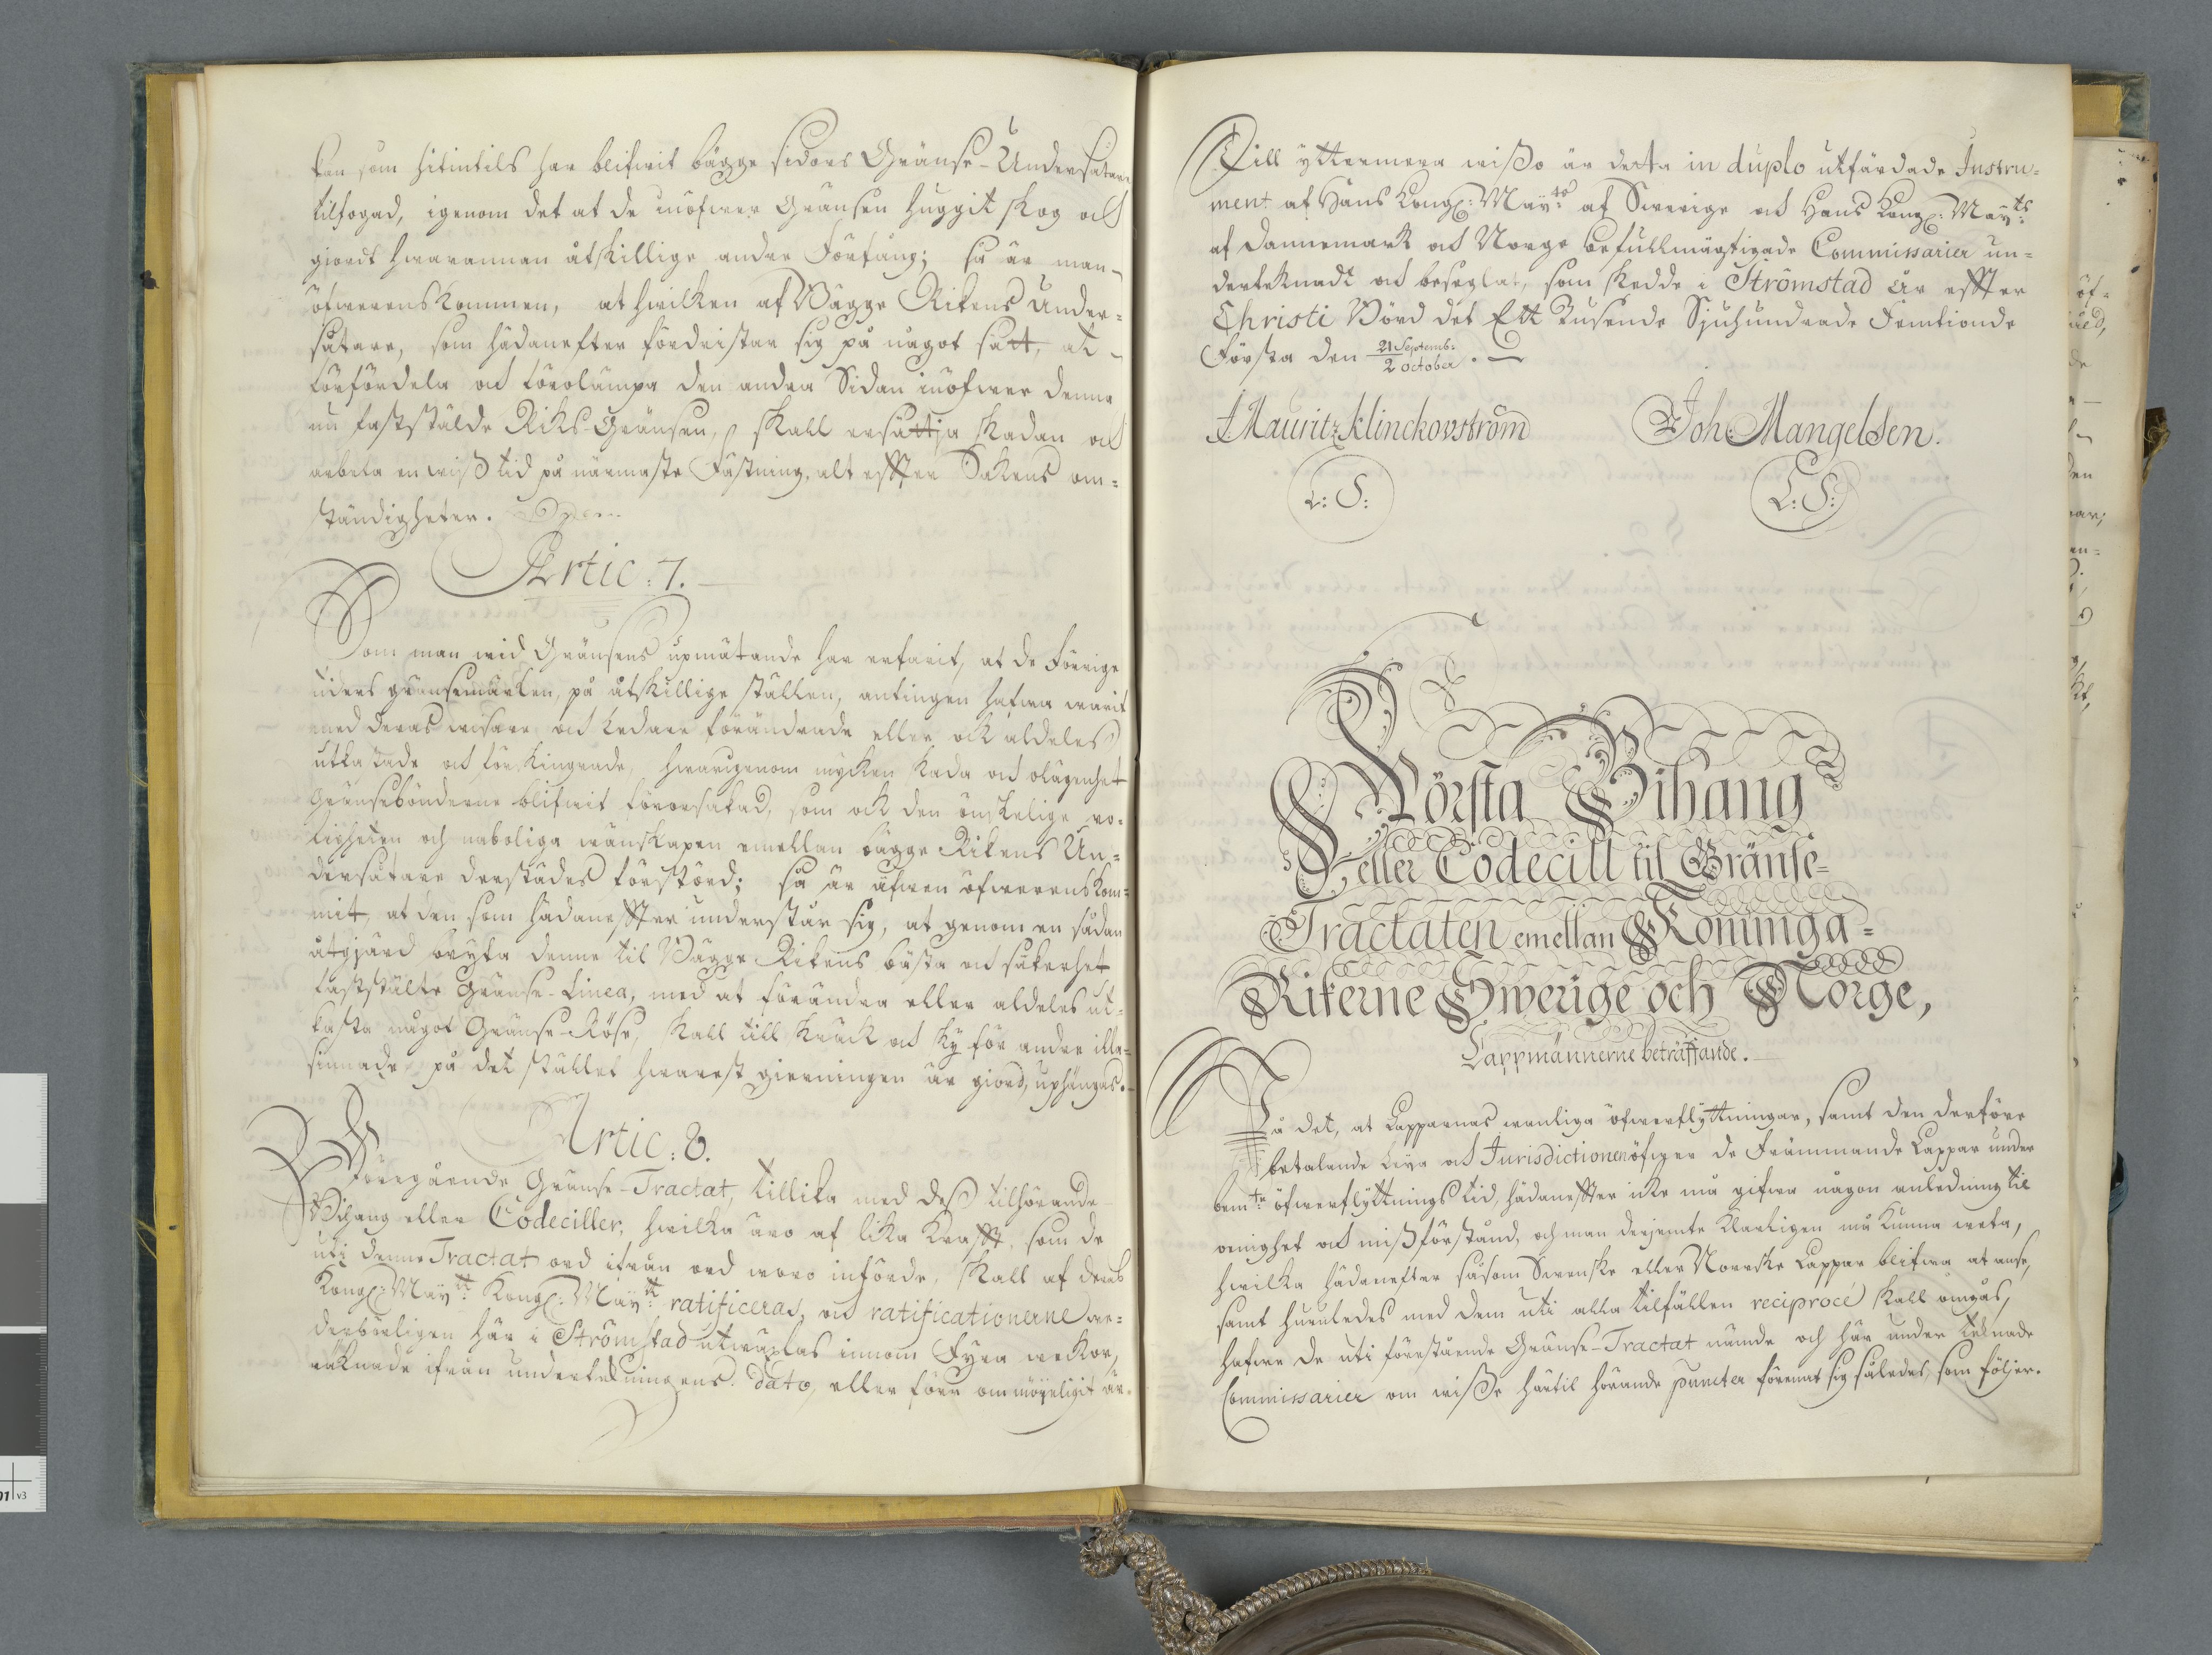 kan som hitintils har blifwit bägge sidors Gränse-Undersåtare
tilfogad, igenom det at de inöfwer Gränsen huggit skog och
giordt hwarannan åtskillige andre Förfång; så är man
öfwerenskommen, at hwilken af Bägge Rikens Under-
såtare, som hädanefter fördristar sig på något sätt, at
förfördela och förolämpa den andra Sidan inöfwer denna
nu fastställde Riks-Gränsen, skall ersättja skadan och
arbeta en wiß tid på närmaste Fästning, alt effter Sakens om-
ständigheter.
Artic: 7.
Som man wid Gränsens upmätande har erfarit, at de Förrige
tiders gränsemärken, på åtskillige ställen, antingen hafwa warit
med deras wisare och ledare förändrade eller ock aldeles
utkastade och förskingrade, hwarigenom mycken skada och olägenhet
Gränsebönderne blifwit förorsakad, som ock den önskelige ro-
ligheten och naboliga wänskapen emellan bägge Rikens Un-
dersåtare derstädes förstörd; så är äfwen öfwerenskom-
mit, at den som hädaneffter understår sig, at genom en sådan
åtgjärd bryta denne til Bägge Rikens bästa och säkerhet
fastställte Gränse-Linea, med at förändra eller aldeles ut-
kasta något Gränse-Röse, skall till skräck och sky för andre illa-
sinnade, på det stället hwarest gierningen är giord, uphängas.
Artic: 8.
Föregående Gränse-Tractat, tillika med deß tilhörande
Bihang eller Codeciller, hwilka äro af lika Krafft, som de
uti denne Tractat ord ifrån ord woro införde, skall af deras
Kongl: Maÿtt: Kongl: Maÿtt: ratificeras, och ratificationerne we-
derbörligen här i Strömstad utwäxlas innom Fyra weckor,
räknade ifrån underteckningens dato, eller förr om möyeligit är.
Till yttermera wißo är detta in duplo utfärdade Instru-
ment af Hans Kongl: Maÿts af Swerige och Hans Kongl: Maÿts
af Dannemark och Norge befullmägtigade Commissarier un-
dertecknadt och beseglat, som skedde i Strömstad år effter
Christi Börd det Ett Tusende Sjuhundrade Femtionde
Första den 21 Septemb: / 2 October.
J. Mauritz Klinckovström Joh Mangelsen.
L: S: L: S:
Första Bihang
eller Codecill til Gränse-
Tractaten emellan Konunga-
Rikerne Swerige och Norge,
Lappmännerne beträffande.
På det, at Lapparnas wanliga öfwerflyttningar, samt den derföre
betalande Leÿa och Jurisdictionen öfwer de Främmande Lappar under
bemte öfwerflyttnings tid, hädaneffter icke må gifwa någon anledning til
oenighet och mißförstånd, och man derjemte klarligen må kunna weta,
hwilka hädanefter såsom Swenske eller Norrske Lappar blifwa at anse,
samt huruledes med dem uti alla tilfällen reciproce skall omgås,
hafwe de uti förestående Gränse-Tractat nämde och här under tecknade
Commissarier om wiße härtil hörande puncter förenat sig således, som följer.